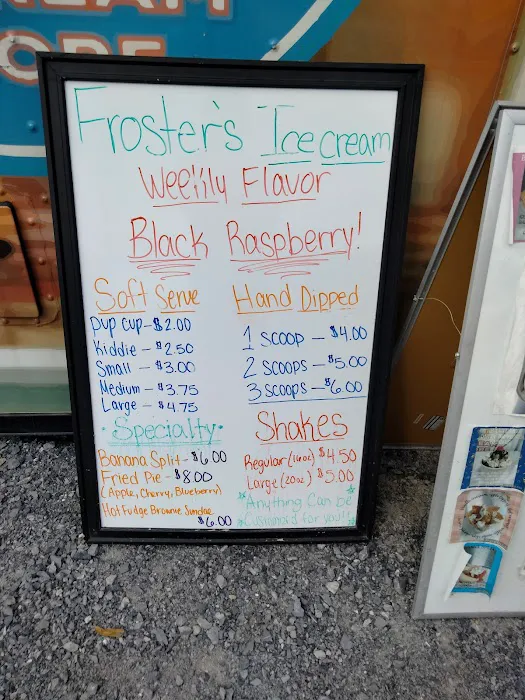 Froster's Ice cream
Weekly Flavor
Black Raspberry!
Soft Serve
pup cup - $2.00
Kiddie - $2.50
Small - $3.00
Medium - $3.75
Large - $4.75
Hand Dipped
1 scoop - $4.00
2 scoops - $5.00
3 scoops - $6.00
·Specialty·
Banana Split - $6.00
Fried Pie - $8.00
(Apple, Cherry, Blueberry)
Hot Fudge Brownie Sundae
$6.00
Shakes
Regular (16oz) $4.50
Large (20oz) $5.00
Anything Can be
for you!!